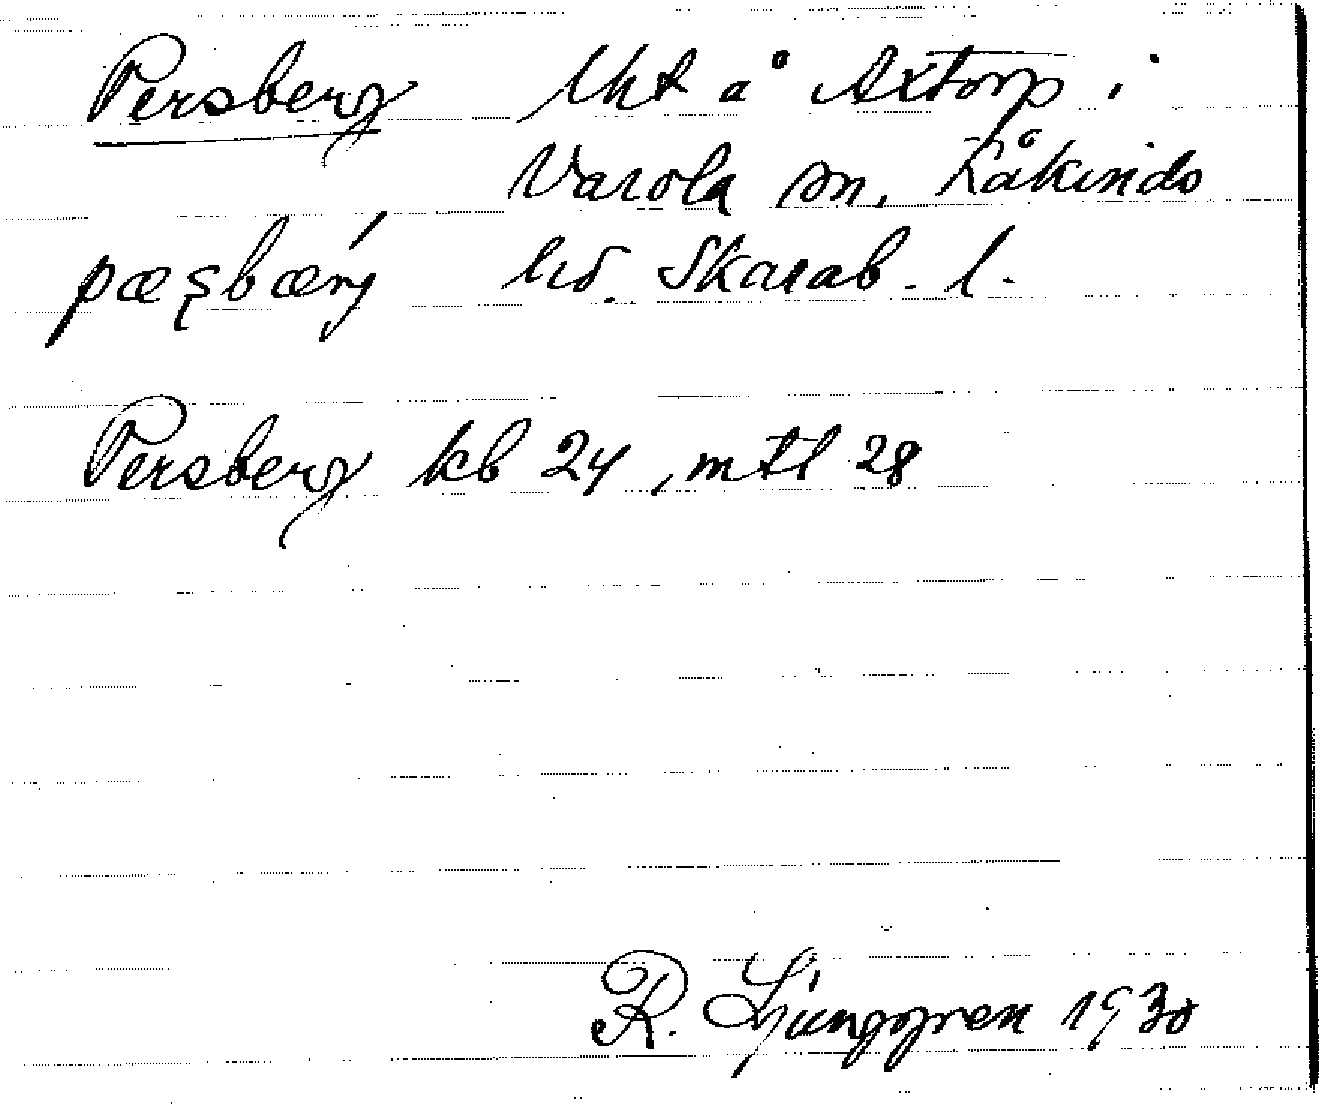 Persberg lht å Axtorp i
Varola sn, Kåkinds
pæʂbærj hd. Skarab. l.
Persberg kb 24, mtl 28
R. Ljunggren 1930